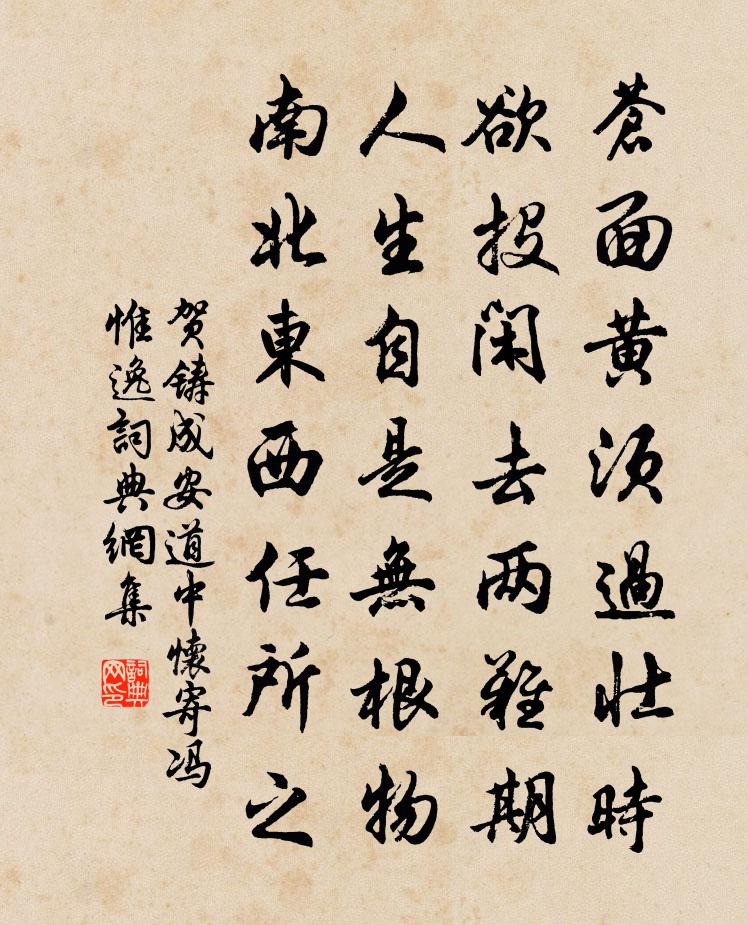 蒼面黄須過壮時
欲投閑去两難期
人生自是無根物
南北東西任所之
贺鑄成安道中懷寄冯
惟逸詞典網集
詞典网印